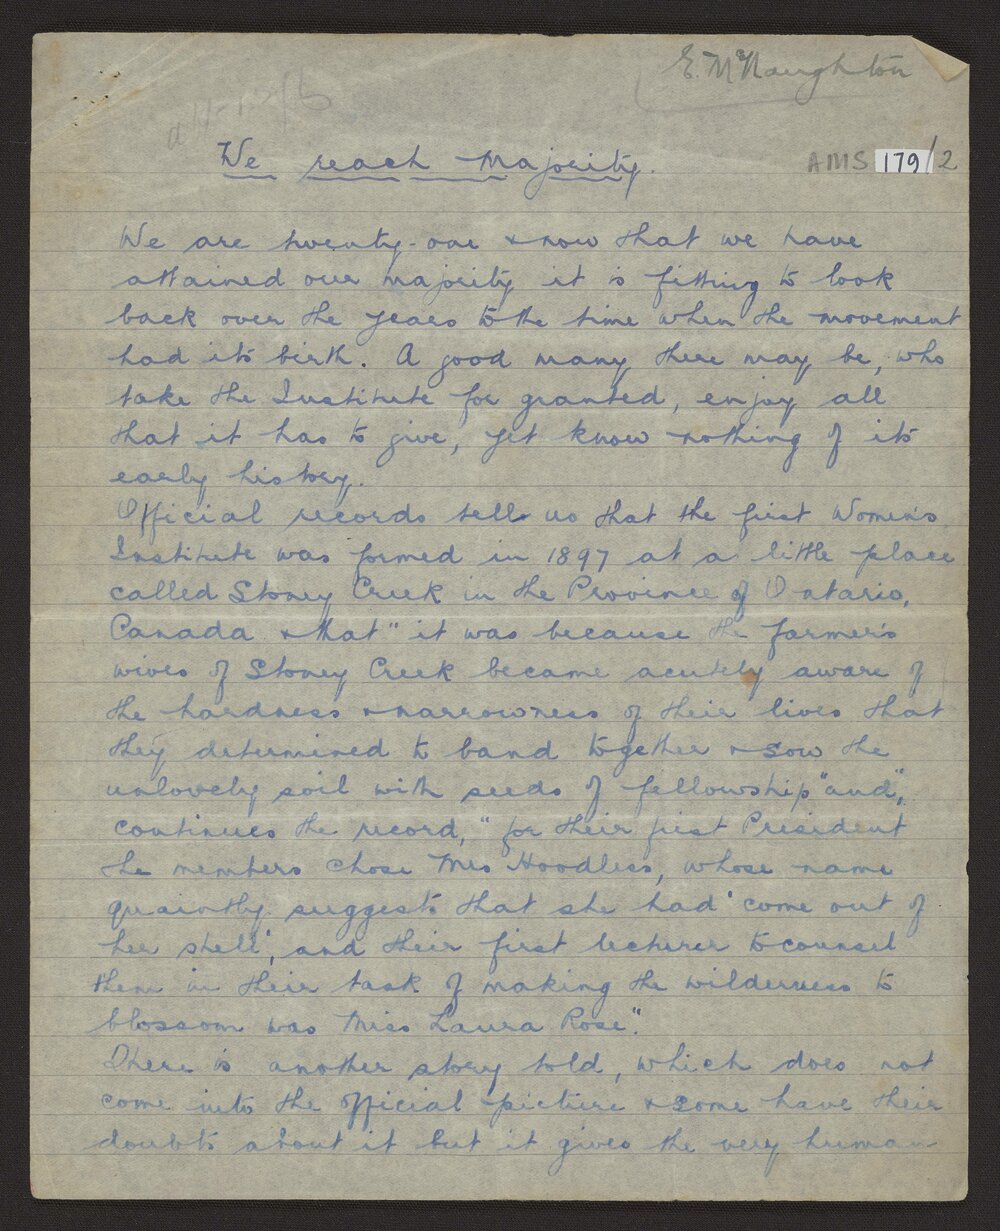 E. McNaughton
We reach majority.
AMS 179/2
We are twenty-one & now that we have
attained our majority it is fitting to look
back over the years to the time when the movement
had its birth. A good many there may be, who
take the Institute for granted, enjoy all
that it has to give, yet know nothing of its
early history.
Official records tell us that the first Women's
Institute was formed in 1897 at a little place
called Stoney Creek in the Province of Ontario,
Canada & that "it was because the farmer's
wives of Stoney Creek became acutely aware of
the hardness & narrowness of their lives that
they determined to band together & sow the
unlovely soil with seeds of fellowship" and",
continues the record, "for their first President
the members chose Mrs Hoodless, whose name
quaintly suggests that she had 'come out of
her shell', and their first lecturer to counsel
them in their task of making the wilderness to
blossom was Miss Laura Rose".
There is another story told, which does not
come into the official picture & some have their
doubts about it but it gives the very human